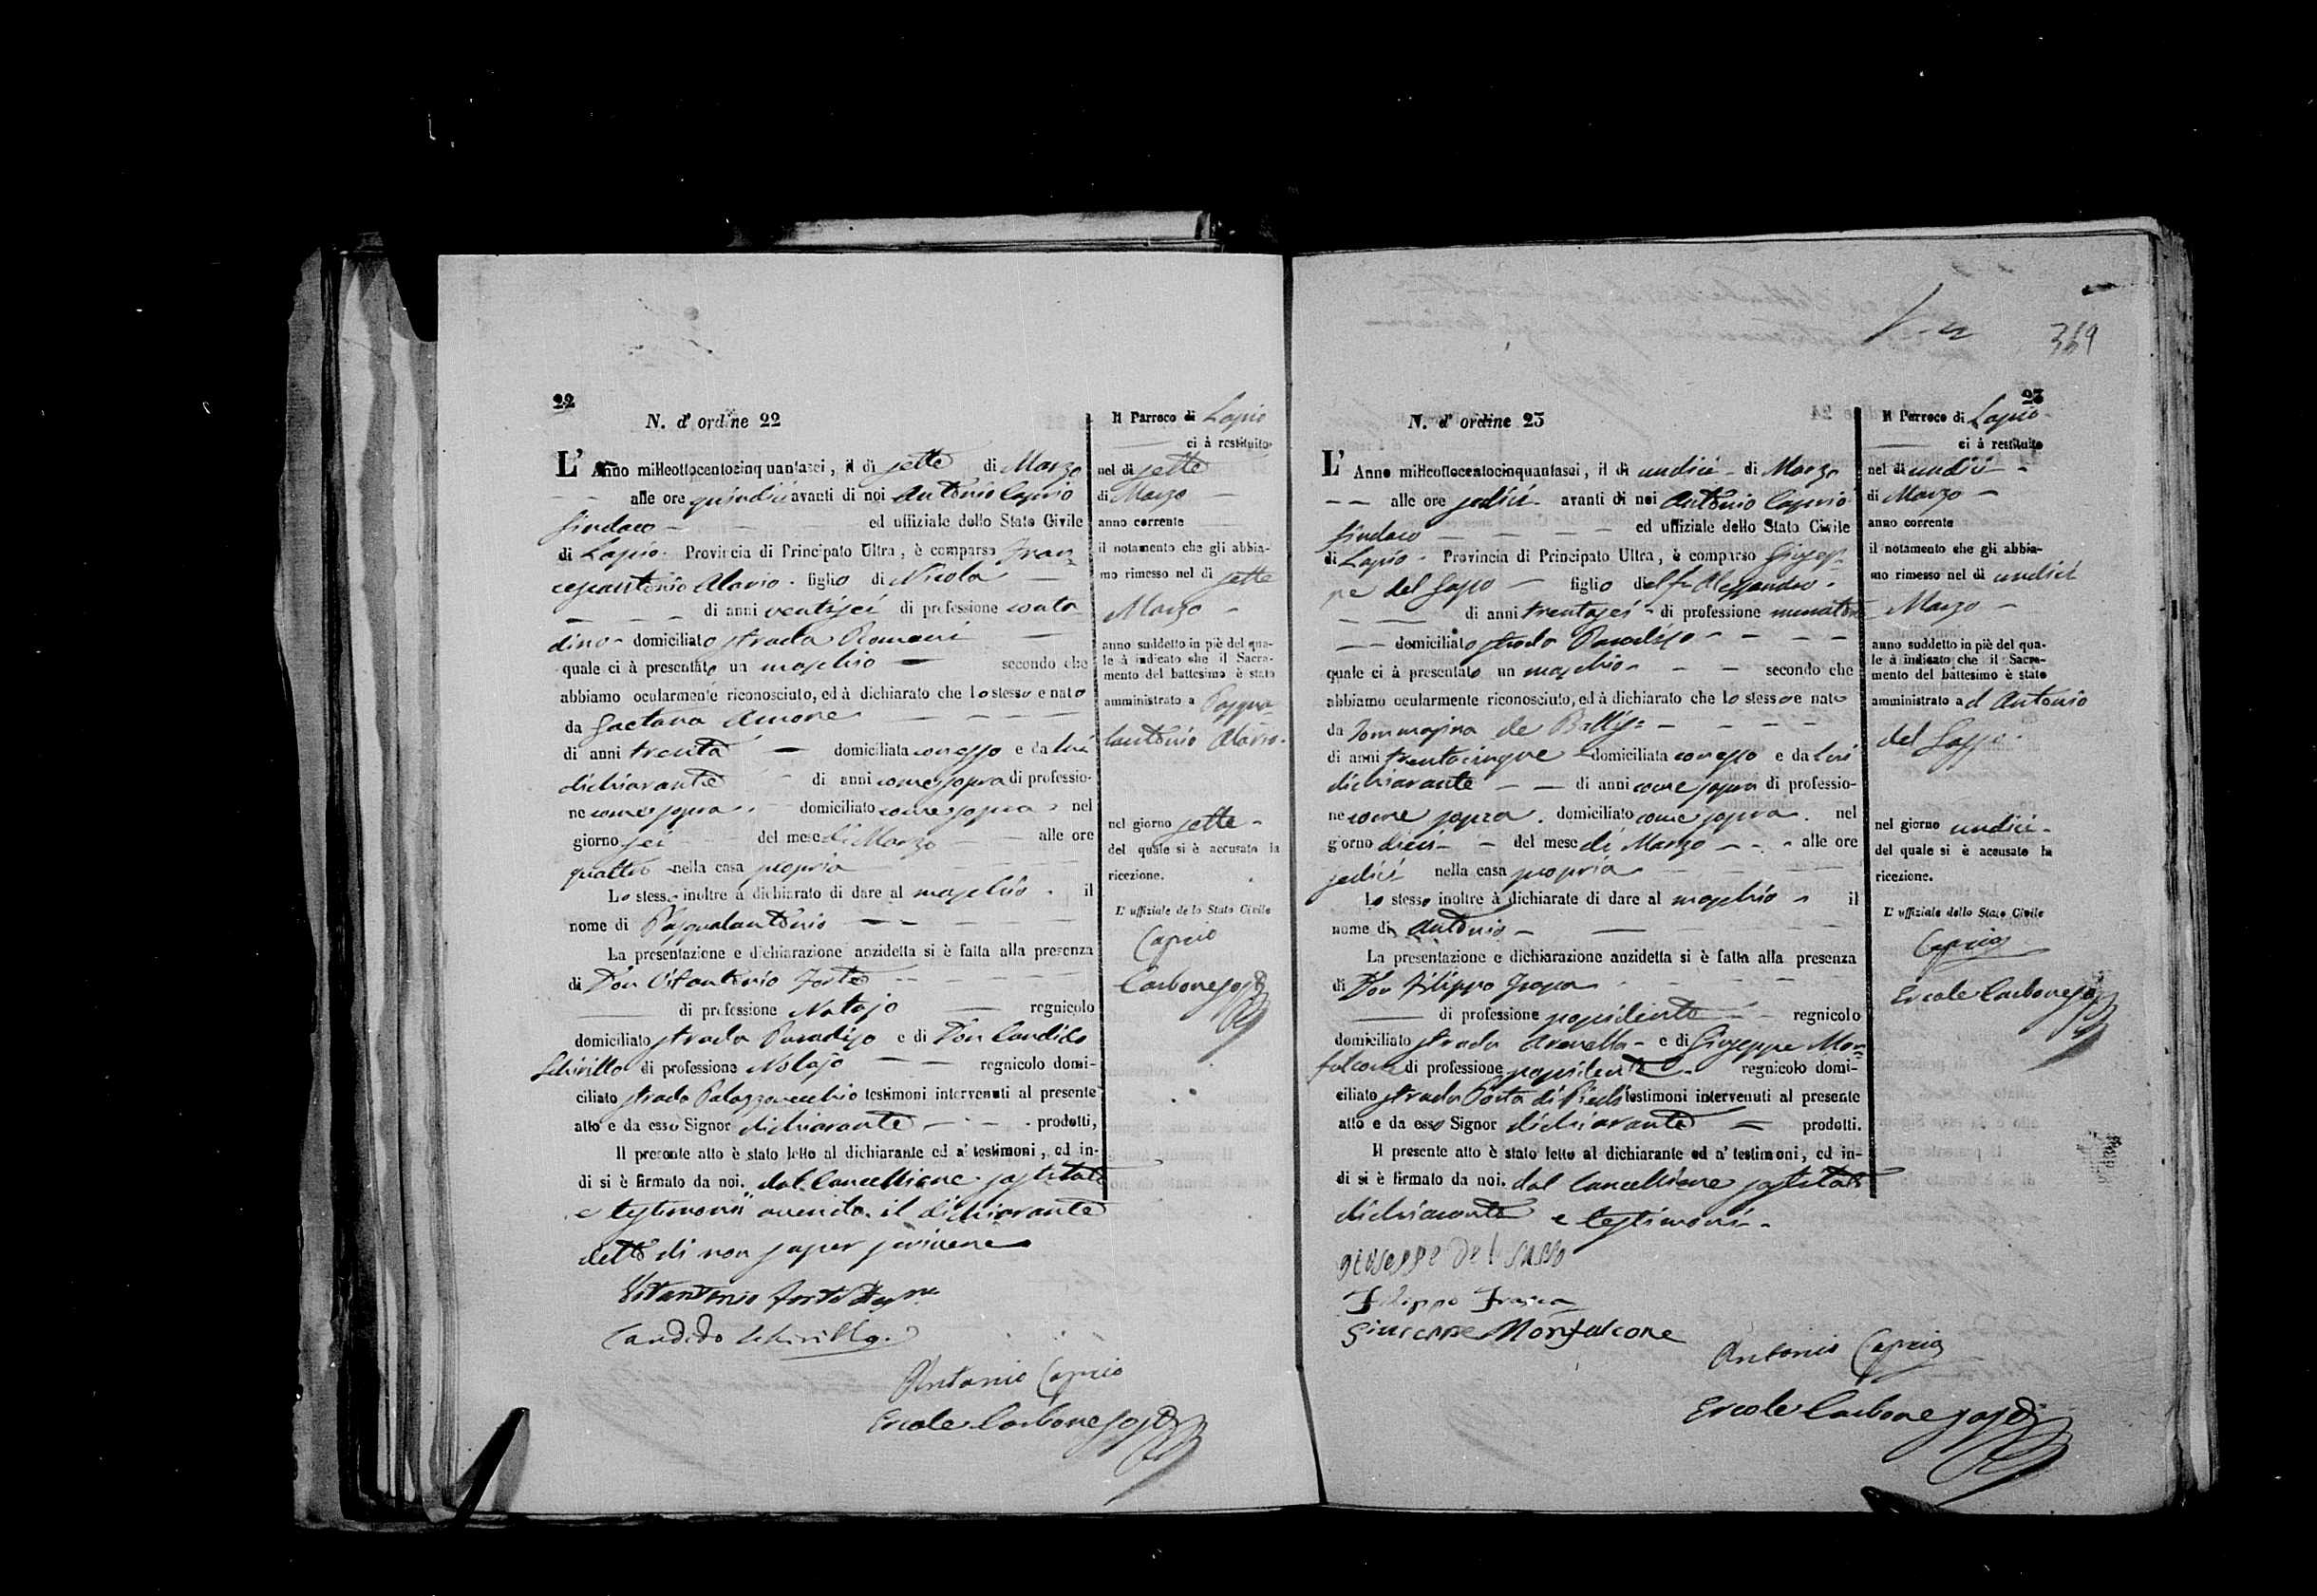 22
N. d' ordine 22
L' Anno milleottocentocinquantasei, il di sette di Marzo
alle ore quindici avanti di noi Antonio Caprio
Sindaco ed uffiziale dello Stato Civile
di Lapio. Provincia di Principato Ultra, è comparso Fran=
cescantonio Alario. figlio di Nicola
di anni ventisei di professione conta
dino domiciliato strada Romani
quale ci à presentato un maschio secondo che
abbiamo ocularmente riconosciuto, ed à dichiarato che lo stesso e nato
da Gaetana Amore
di anni trenta domiciliata con esso e da lui
dichiarante di anni come sopra di professio-
ne come sopra. domiciliato come sopra nel
giorno sei del mese di Marzo alle ore
quattro nella casa propria
Lo stesso inoltre à dichiarato di dare al maschio. il
nome di Pasqualantonio
La presentazione e dichiarazione anzidetta si è fatta alla presenza
di Don Vitantonio Forte
di professione Notajo regnicolo
domiciliato strada Paradiso e di Don Candido
Schirillo di professione Notajo regnicolo domi-
ciliato strada Palazzovecchio testimoni intervenuti al presente
atto e da esso Signor dichiarante prodotti,
Il presente atto è stato letto al dichiarante ed a' testimoni, ed in-
di si è firmato da noi. dal Cancelliere sostituto
e testimonii avendo il dichiarante
detto di non saper scrivere
Vitantonio Forte
Candido Schirillo
Antonio Caprio
Ercole Carbone sost
Il Parroco di Lapio
ci à restituito
nel di sette
di Marzo
anno corrente
il notamento che gli abbia-
mo rimesso nel di sette
Marzo
anno suddetto in piè del qua-
le à indicato che il Sacra-
mento del battesimo è stato
amministrato a Pasqua
lantonio Alario.
nel giorno sette
del quale si è accusato la
ricezione.
L' uffiziale dello Stato Civile
Caprio
Carbone sost
369
23
N. d' ordine 23
L' Anno milleottocentocinquantasei, il di undici di Marzo
alle ore sedici avanti di noi Antonio Caprio
Sindaco ed uffiziale dello Stato Civile
di Lapio. Provincia di Principato Ultra, è comparso Giusep-
pe del Sasso figlio del fu Alessandro.
di anni trentasei di professione muratore
domiciliato strada Paradiso
quale ci à presentato un maschio secondo che
abbiamo ocularmente riconosciuto, ed à dichiarato che lo stesso e nato
da Tommasina de Bellis
di anni trentacinque domiciliata con esso e da lui
dichiarante di anni come sopra di professio-
ne come sopra. domiciliato come sopra. nel
giorno dieci del mese di Marzo alle ore
sedici nella casa propria
Lo stesso inoltre à dichiarato di dare al maschio il
nome di Antonio
La presentazione e dichiarazione anzidetta si è fatta alla presenza
di Don Filippo
di professione possidente regnicolo
domiciliato strada Arenella e di Giuseppe Mon=
falcone di professione possidente regnicolo domi-
ciliato strada Porta di Piedi testimoni intervenuti al presente
atto e da esso Signor dichiarante prodotti.
Il presente atto è stato letto al dichiarante ed a' testimoni, ed in-
di si è firmato da noi. dal Cancelliere sostituto
dichiarante e testimoni
Giuseppe del Sasso
Filippo
Giuseppe Monfalcone
Antonio Caprio
Ercole Carbone sost
Il Parroco di Lapio
ci à restituito
nel di undici
di Marzo
anno corrente
il notamento che gli abbia-
mo rimesso nel di undici
Marzo
anno suddetto in piè del qua-
le à indicato che il Sacra-
mento del battesimo è stato
amministrato ad Antonio
del Sasso.
nel giorno undici
del quale si è accusato la
ricezione.
L' uffiziale dello Stato Civile
Caprio
Ercole Carbone so